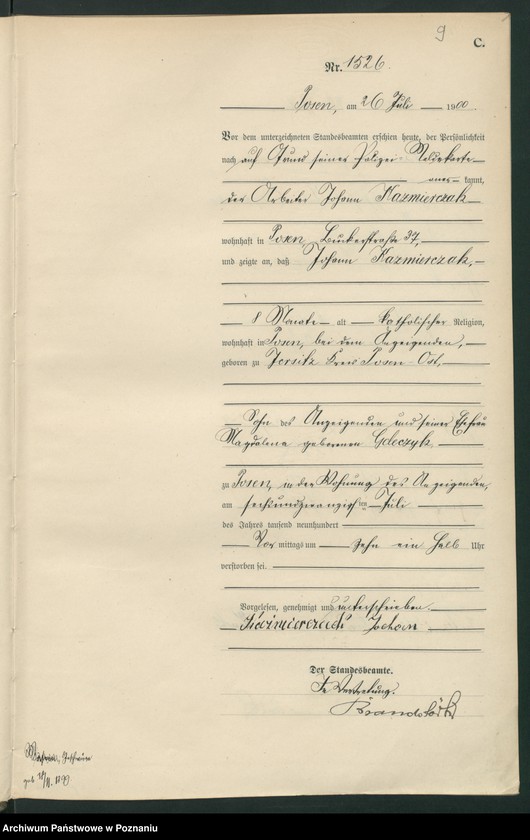 9
C.
Nr. 1526.
Posen, am 26 Juli 1900
Vor dem unterzeichneten Standesbeamten erschien heute, der Persönlichkeit
nach auf Grund seiner Polizei-Meldekarte
aner kannt,
der Arbeiter Johann Kazmierczak
wohnhaft in Posen, Bukerstraße 37,
und zeigte an, daß Johann Kazmierczak,
8 Monate alt katholischer Religion,
wohnhaft in Posen, bei dem Anzeigenden,
geboren zu Jersitz Kreis Posen-Ost,
Sohn des Anzeigenden und seiner Ehefrau
Magdalena geborenen
zu Posen, in der Wohnung des Anzeigenden,
am sechsundzwanzigsten Juli
des Jahres tausend neunhundert
Vor mittags um zehn ein halb Uhr
verstorben sei.
Vorgelesen, genehmigt und unterschrieben
Kaźmierczak Johan
Der Standesbeamte.
In Vertretung.
geb. 1899
Archiwum Państwowe w Poznaniu